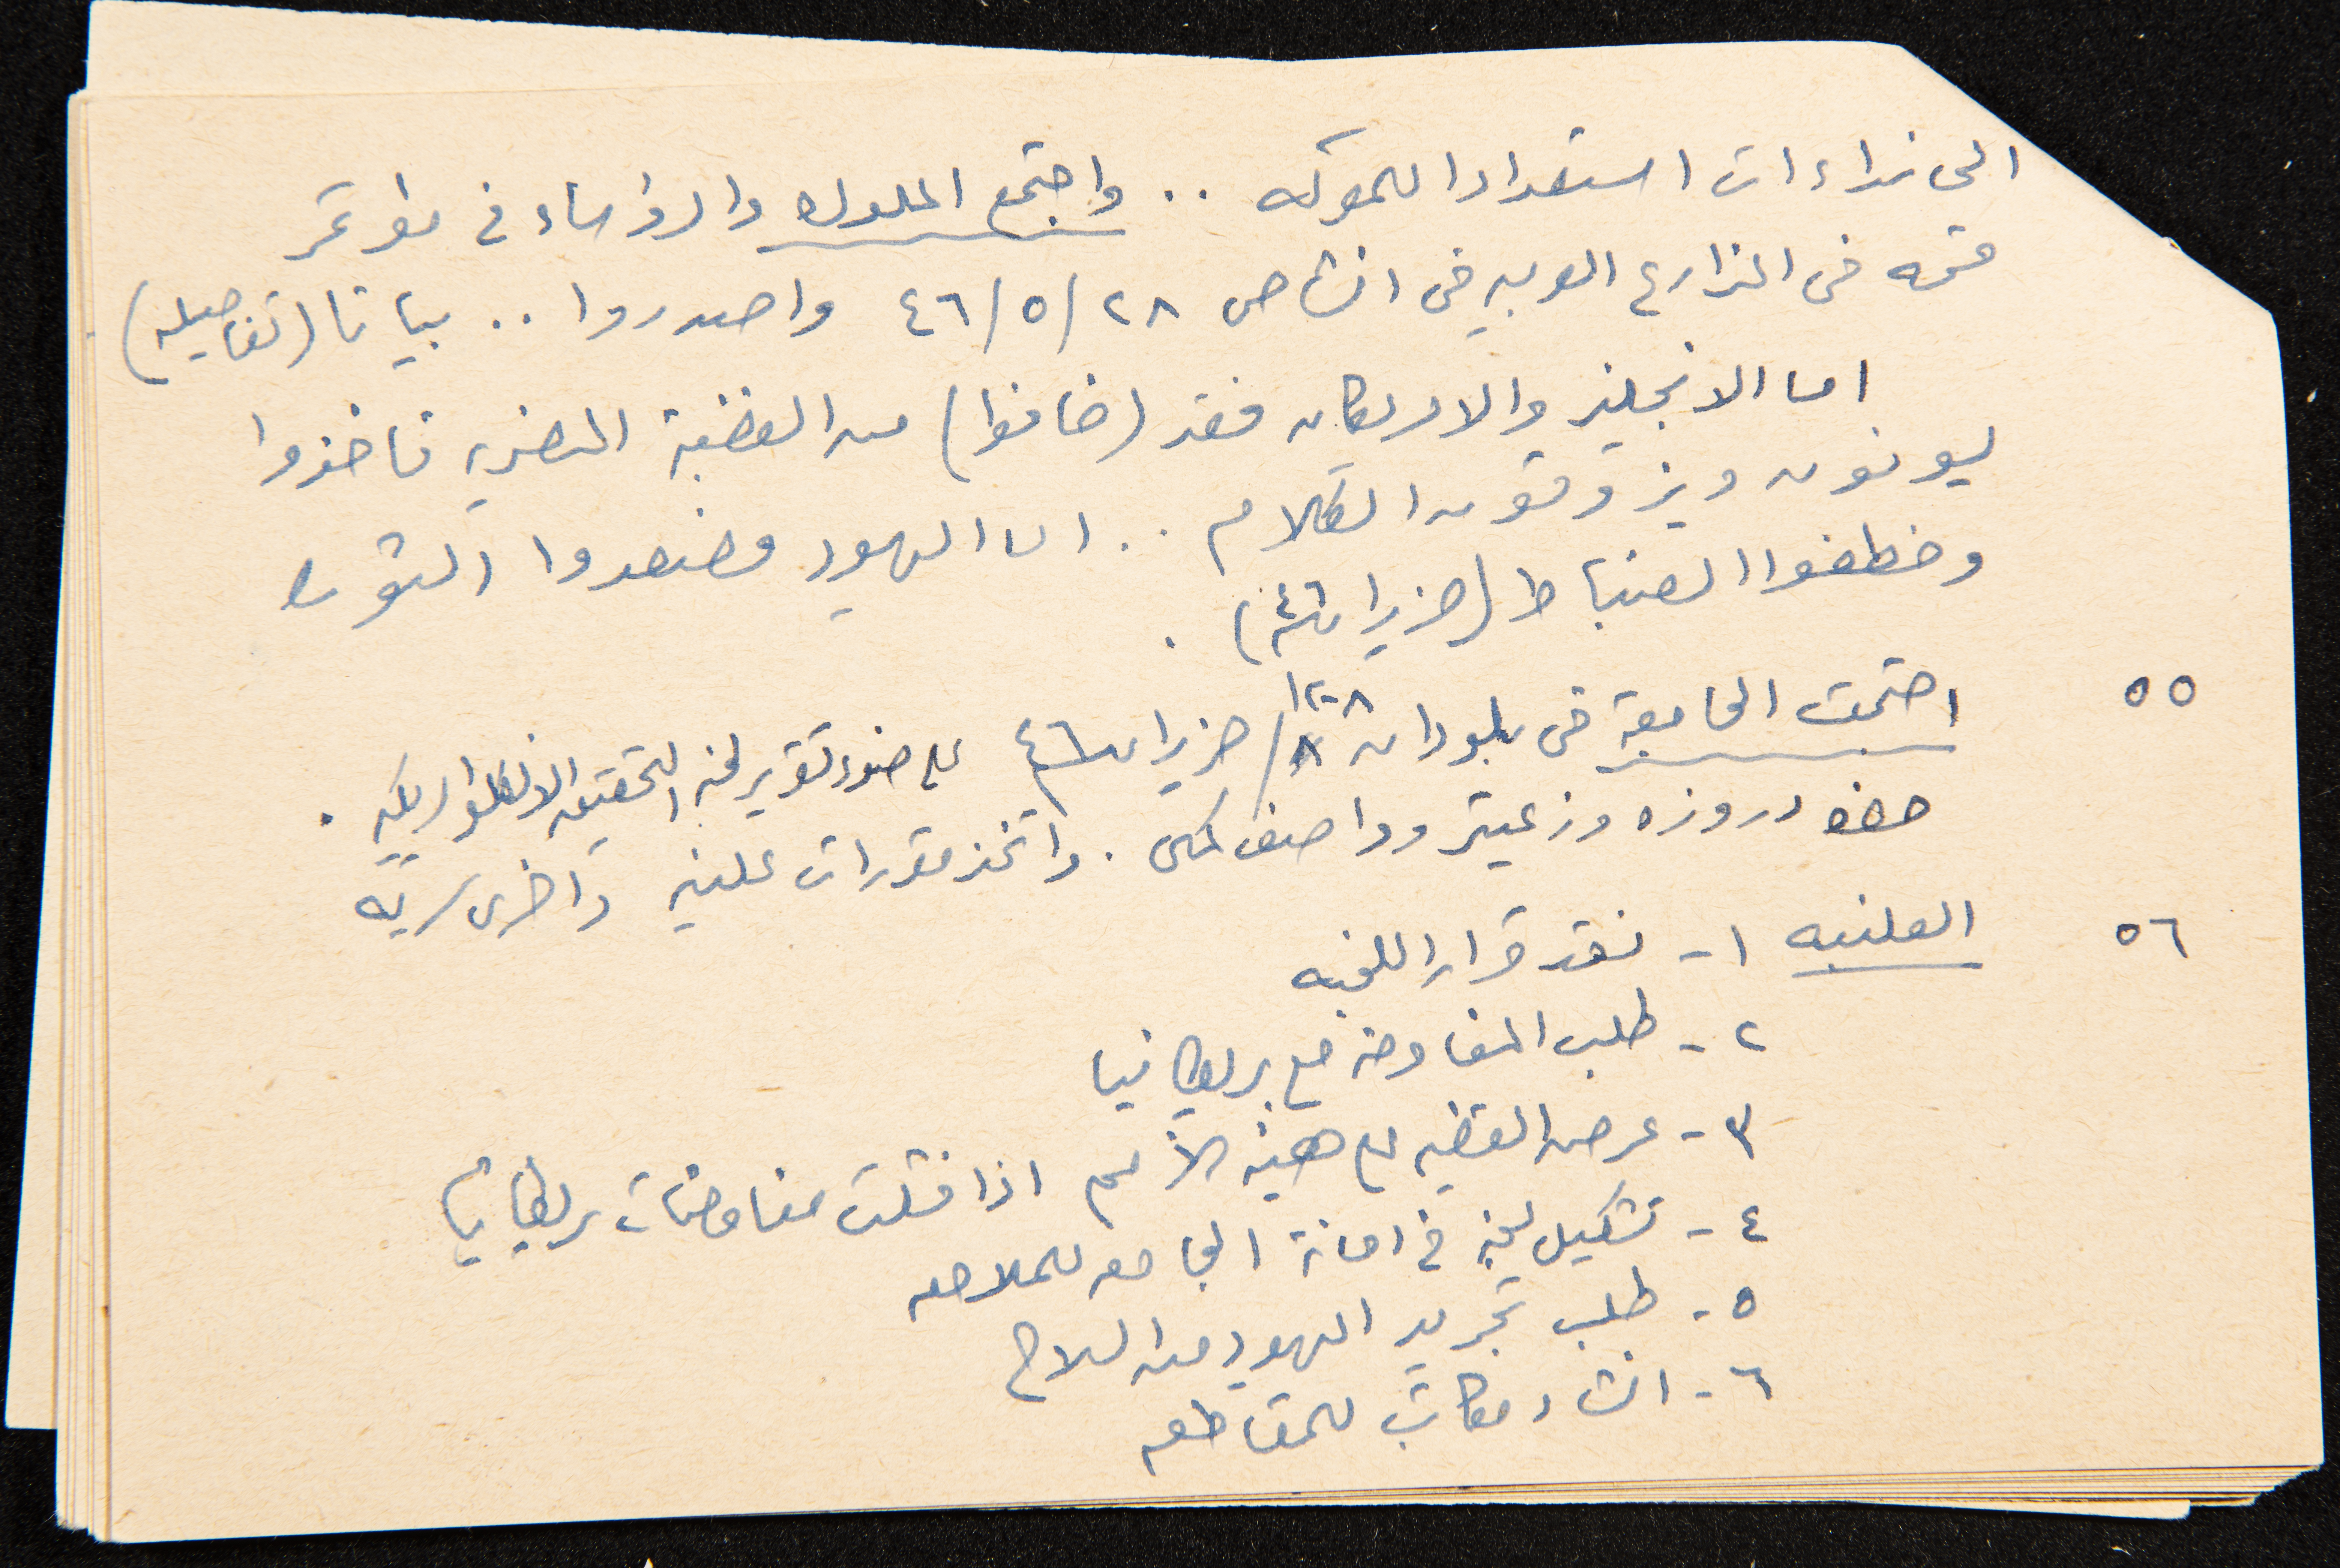 الى نداءات استعدادا للمعركه .. واجتمع الملوك والرؤساء في مؤتمر
قمه في المزارع العربيه في انشاص ٢٨/٥/٤٦ واصدروا .. بيانا (تفاصيله).
اما الانجليز والامريكان فقد (خافوا) من الغضبة المضريه فاخذوا
يسوفون ويزوقون الكلام .. اما اليهود فصعدوا الثوره
وخطفوا الضباط (حزيران ٤٦).
٥٥ اجتمعت الجامعة في بلودان ٨-١٢/حزيران ٤٦ على ضوء تقرير لجنه التحقيق الانكلو امريكيه.
حضره دروزه وزعيتر وواصف كمال. واتخذ مقررات علنيه واخرى سريه
٥٦ العلنيه ١- نقد قرار اللجنه
٢- طلب المفاوضه مع بريطانيا
٣- عرض القضيه على هيئه الأمم اذا فشلت مفاوضات بريطانيا
٤- تشكيل لجنه في امانة الجامعه للملاحقه
٥- طلب تجريد اليهود من السلاح
٦- انشاء مكاتب للمقاطعه